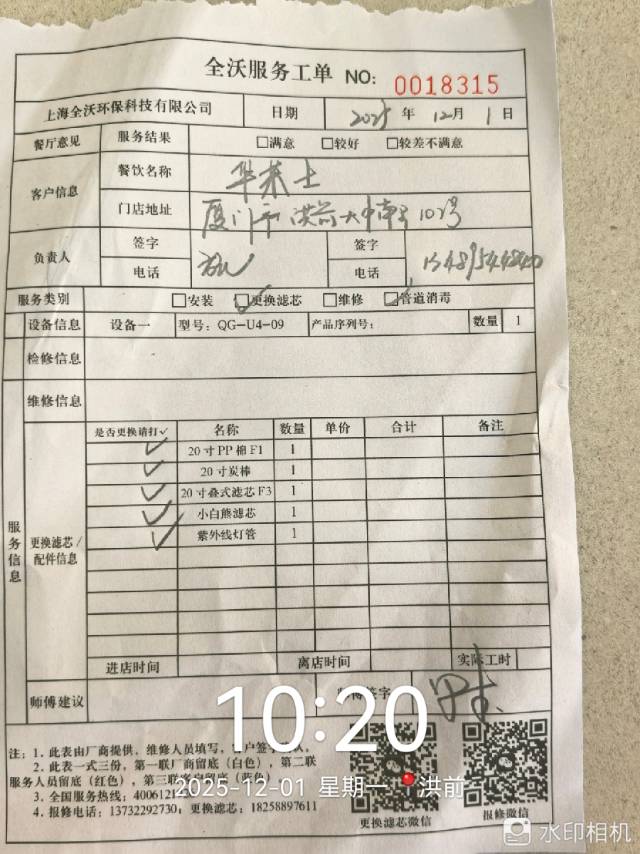 全沃服务工单 NO: 0018315
上海全沃环保科技有限公司 日期 2025 年 12月 1日
餐厅意见 服务结果 □满意 □较好 □较差不满意
客户信息 餐饮名称 华莱士
门店地址 厦门市洪前 102号
负责人 签字 签字
电话 电话
服务类别 □安装 ☑更换滤芯 □维修 ☑管道消毒
设备信息 设备一 型号：QG-U4-09 产品序列号： 数量 1
检修信息
维修信息
服务信息
更换滤芯/配件信息
是否更换请打✓ 名称 数量 单价 合计 备注
✓ 20寸PP棉F1 1
✓ 20寸炭棒 1
✓ 20寸叠式滤芯F3 1
✓ 小白熊滤芯 1
✓ 紫外线灯管 1
进店时间 离店时间 实际工时
师傅建议 师傅签字
10:20
注：1. 此表由厂商提供，维修人员填写，客户签字确认。
2. 此表一式三份，第一联厂商留底（白色），第二联
服务人员留底（红色），第三联客户留底（蓝色）
2025-12-01 星期一 洪前
3. 全国服务热线：
4. 报修电话：13732292730；更换滤芯：18258897611
更换滤芯微信
报修微信
水印相机